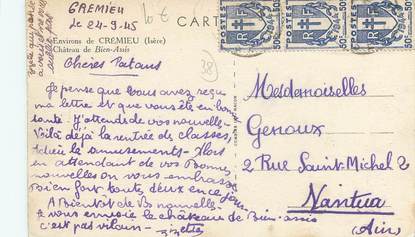 CREMIEU
le 24-9-45
10 €
CARTE
Environs de CRÉMIEU (Isère)
Château de Bien-Assis
38
POSTES
RF
50c
POSTES
RF
50c
POSTES
RF
50c
Chères Tatans
Je pense que vous avez reçu
ma lettre et que vous êtes en bonne
santé. J'attends de vos nouvelles
Voilà déjà la rentrée de classes,
adieu le amusements - Alors
en attendant de vos bonnes
nouvelles on vous embrasse
bien fort toute deux
A Bientôt de Vs nouvelle
Je vous envoie le château de Bien-assis
c'est pas vilain -
Mesdemoiselles
Genoux
2 Rue Saint-Michel 2
Nantua
(Ain)